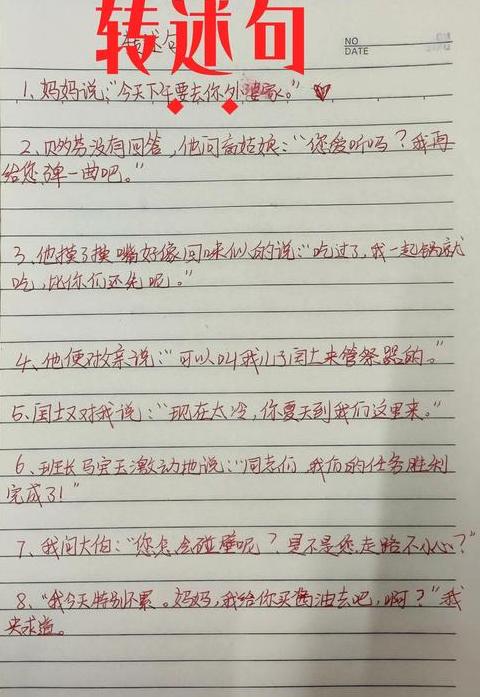 转述句
NO
DATE
1、妈妈说："今天下午要去你外婆家。"
2、贝多芬没有回答，他问盲姑娘："您爱听吗？我再
给您弹一曲吧。"
3、他摸了摸嘴好像回味似的说："吃过了，我一起锅就
吃，比你们还先呢。"
4、他便对父亲说："可以叫我儿子闰土来管祭器的。"
5、闰土又对我说："现在太冷，你夏天到我们这里来。"
6、班长马宝玉激动地说："同志们 我们的任务胜利
完成了！"
7、我问大伯："您怎会碰壁呢？是不是您走路不小心？"
8、"我今天特别不累。妈妈，我给你买酱油去吧，啊？"我
央求道。